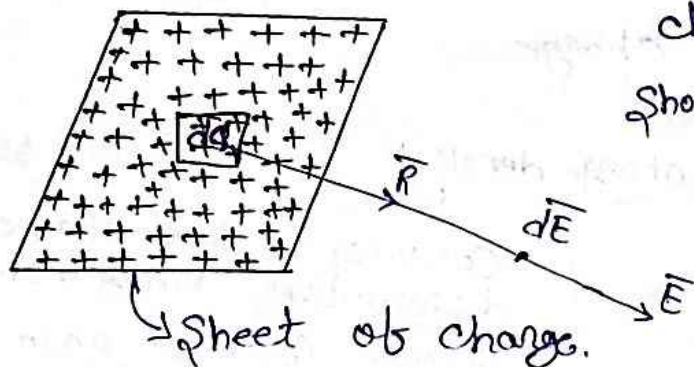 ch
Sho
dQ
R
dE
E
Sheet of charge.